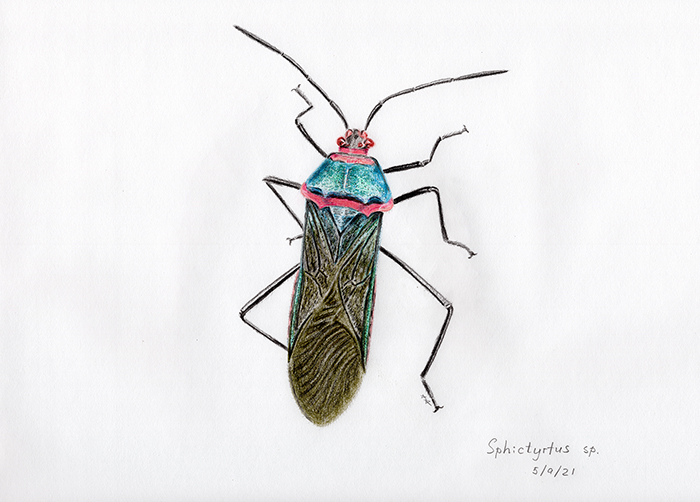 Sphictyrtus sp.
5/9/21